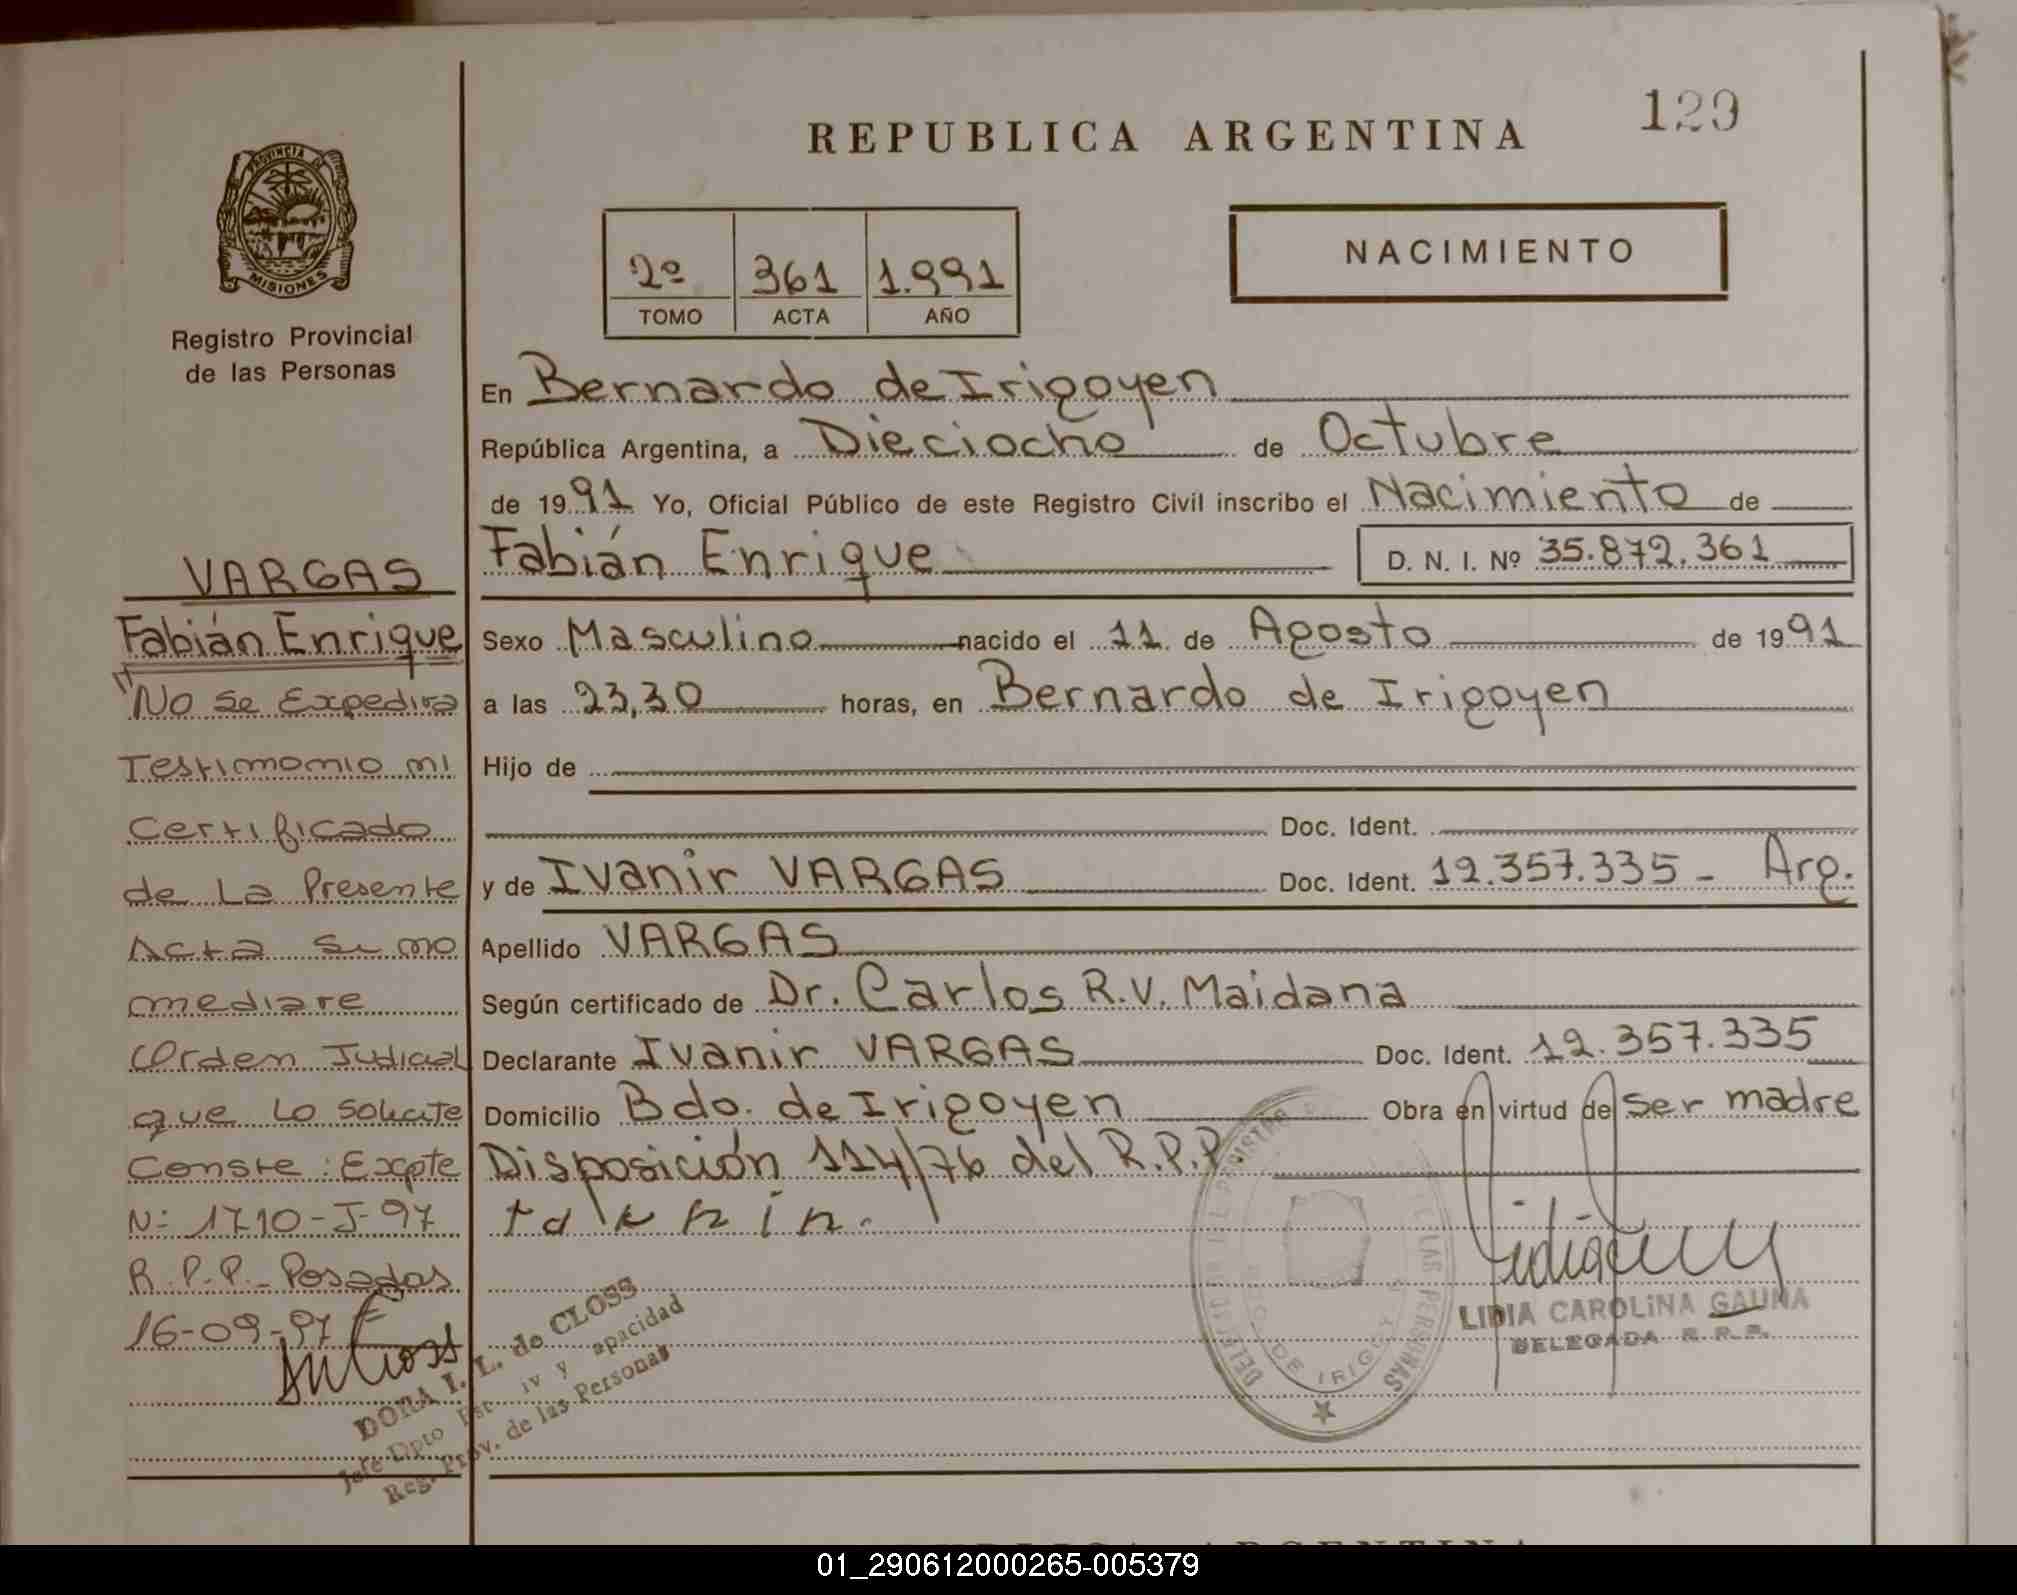 129
REPUBLICA ARGENTINA
PROVINCIA DE
MISIONES
Registro Provincial
de las Personas
2º 361 1.991
TOMO ACTA AÑO
NACIMIENTO
En Bernardo de Irigoyen
República Argentina, a Dieciocho de Octubre
de 1991 Yo, Oficial Público de este Registro Civil inscribo el Nacimiento de
Fabián Enrique D. N. I. Nº 35.872.361
Sexo Masculino nacido el 11 de Agosto de 1991
a las 23,30 horas, en Bernardo de Irigoyen
Hijo de
Doc. Ident.
y de Ivanir VARGAS Doc. Ident. 12.357.335 - Arg.
Apellido VARGAS
Según certificado de Dr. Carlos R.V. Maidana
Declarante Ivanir VARGAS Doc. Ident. 12.357.335
Domicilio Bdo. de Irigoyen Obra en virtud de ser madre
Disposición 114/76 del R.P.P.
VARGAS
Fabián Enrique
No se Expedira
Testimonio ni
Certificado
de La Presente
Acta si no
mediare
Orden Judicial
que Lo solicite
Conste: Expte
N: 1710-J-97
R.P.P. Posadas
16-09-97
DORA I. L. de CLOSS
Jefe Dpto Est iv y apacidad
Reg. Prov. de las Personas
LIDIA CAROLINA GAUNA
DELEGADA R. P. P.
REPUBLICA ARGENTINA
01_290612000265-005379